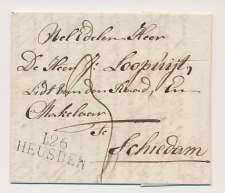 Wel Edelen Heer
De Heer J: Loopuijt,
Lidt van den Raad, En
Makelaar
te
Schiedam
126
HEUSDEN